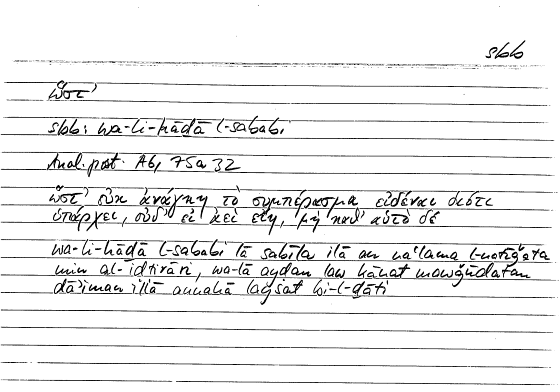 sbb
ὥστ'
sbb: wa-li-hāḏā l-sababi
Anal. post. A6, 75a 32
ὥστ' οὐκ ἀνάγκη τὸ συμπέρασμα εἰδέναι διότι
ὑπάρχει, οὐδ' εἰ ἀεὶ εἴη, μὴ καθ' αὑτὸ δέ
wa-li-hāḏā l-sababi lā sabīla ilā an naʿlama l-natīǧata
min al-iḍṭirāri, wa-lā ayḍan law kānat mawǧūdatan
dāʾiman illā annahā laysat bi-l-ḏāti